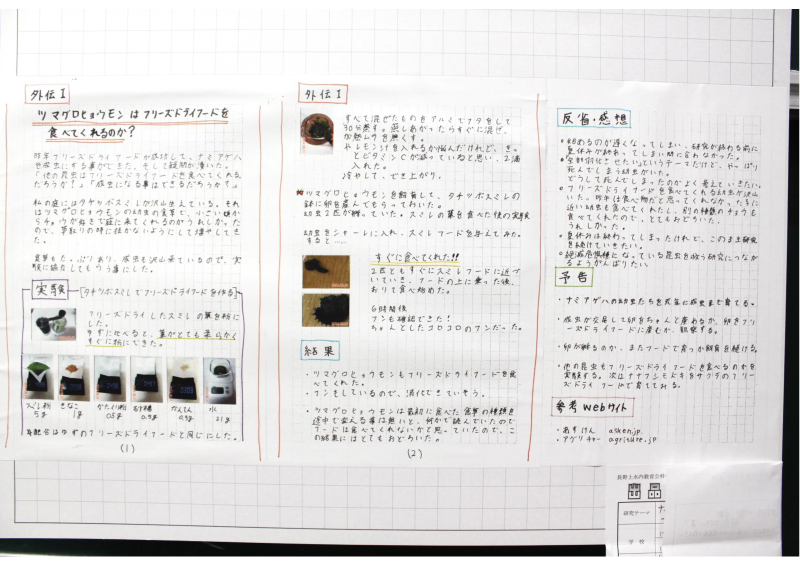 外伝Ⅰ
ツマグロヒョウモンはフリーズドライフードを
食べてくれるのか?
昨年フリーズドライフードが成功して、ナミアゲハ
を成虫にする事ができた。そして疑問が湧いた。
「他の昆虫はフリーズドライフードを食べてくれる
だろうか?」「成虫になる事はできるだろうか?」
私の庭にはタチツボスミレが沢山生えている。それ
はツマグロヒョウモンの幼虫の食草で、小さい頃か
らチョウが好きで庭に来てくれるのがうれしかった
ので、草取りの時に抜かないようにして増やしてき
た。
食草もたっぷりあり、成虫も沢山来ているので、実
験に協力してもらう事にした。
実験
[タチツボスミレでフリーズドライフードを作る]
フリーズドライしたスミレの葉を粉に
した。
ゆずに比べると、葉がとても柔らかく
すぐに粉にできた。
つぶし粉
5g
きなこ
1g
かたくり粉
0.5g
0.5g
かんてん
0.5g
水
21g
配合はゆずのフリーズドライフードと同じにした。
(1)
外伝Ⅰ
すべて混ぜたものをアルミでフタをして
30分蒸す。蒸しあがったらすぐに混ぜ、
加熱ムラを無くす。
やレモン汁を入れるか悩んだけれど、きっ
とビタミンCが減っていると思い、2滴
入れた。
冷やして、でき上がり。
ツマグロヒョウモンを飼育して、タチツボスミレの
鉢に卵を産んでもらっておいた。
幼虫2匹が育っていた。スミレの葉を食べた後の実験
幼虫をシャーレに入れ、スミレフードを与えてみた。
すると……
すぐに食べてくれた!!
2匹ともすぐにスミレフードに近づ
いていき、フードの上に乗った後、
おりて食べ始めた。
6時間後
フンも確認できた!
ちゃんとしたコロコロのフンだった。
結果
・ツマグロヒョウモンもフリーズドライフードを食
べてくれた。
・フンもしているので、消化できていそう。
・ツマグロヒョウモンは最初に食べた食草の種類を
途中で変える事は無いと、何かで読んでいたので
フードは食べてくれないかと思っていたので、こ
の結果にはとてもおどろいた。
(2)
反省・感想
始めるのが遅くなってしまい、研究が終わる前に
夏休みが終わってしまい間に合わなかった。
全部羽化させたいというテーマだけど、やっぱり
死んでしまう幼虫がいた。
どうして死んでしまったのかよく考えていきたい。
フリーズドライフードを食べてくれる幼虫が沢山
いた。昨年は食べ物だと思ってくれなかった、
近い幼虫も食べてくれたし、別の種類のチョウも
食べてくれたので、とてもおどろいた。
うれしかった。
夏休みは終わってしまったけれど、このまま研究
を続けていきたい。
絶滅危惧種になっている昆虫を救う研究につなが
るようがんばりたい。
予告
・ナミアゲハの幼虫たちを成虫まで育てる。
・成虫が交尾して卵をちゃんと産めるか、卵をフリ
ーズドライフードに産むか、観察する。
・卵が孵るのか、またフードで育つか飼育を続ける。
・他の昆虫もフリーズドライフードを食べるのかを
実験する。次はナナフシモドキをサクラのフリー
ズドライフードで育ててみる。
参考Webサイト
・あすけん asken.jp
・アグリチャー agriture.jp
長野上水内教育会科
研究テーマ
学校